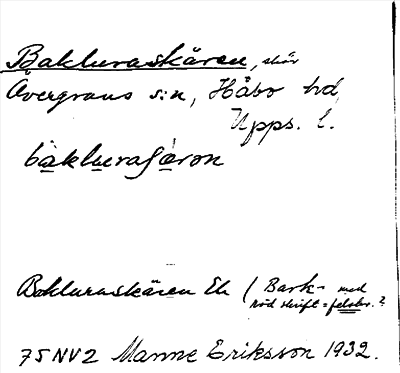 Bakluraskären, skär
Övergrans s:n, Håbo hd,
Upps. l.
bakluraſäron
Bakluraskären Ek (Bark- med
röd skrift = felskr.?
75NV2 Manne Eriksson 1932.